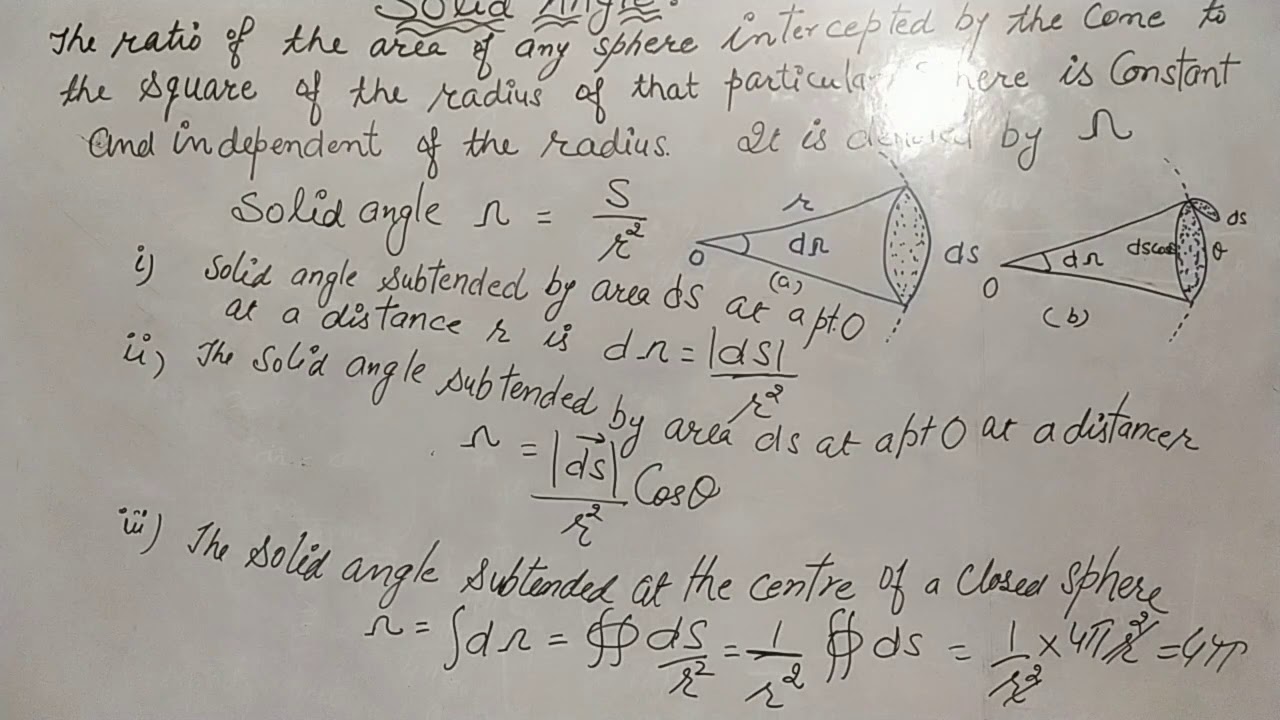 Solid Angle.
The ratio of the area of any sphere intercepted by the Come to
the square of the radius of that particular here is Constant
and independent of the radius. It is depicted by Ω
Solid angle Ω = S/r²
r
dΩ
O
ds
(a)
ds
dscosθ
θ
dΩ
O
(b)
i) solid angle subtended by area ds at a pt. O
at a distance r is dΩ = |ds|/r²
ii) The solid angle subtended by area ds at a pt O at a distance r
Ω = |d⃗s|/r² Cosθ
iii) The solid angle subtended at the centre of a closed sphere
Ω = ∫dΩ = ∯ ds/r² = 1/r² ∯ ds = 1/r² × 4πr² = 4π